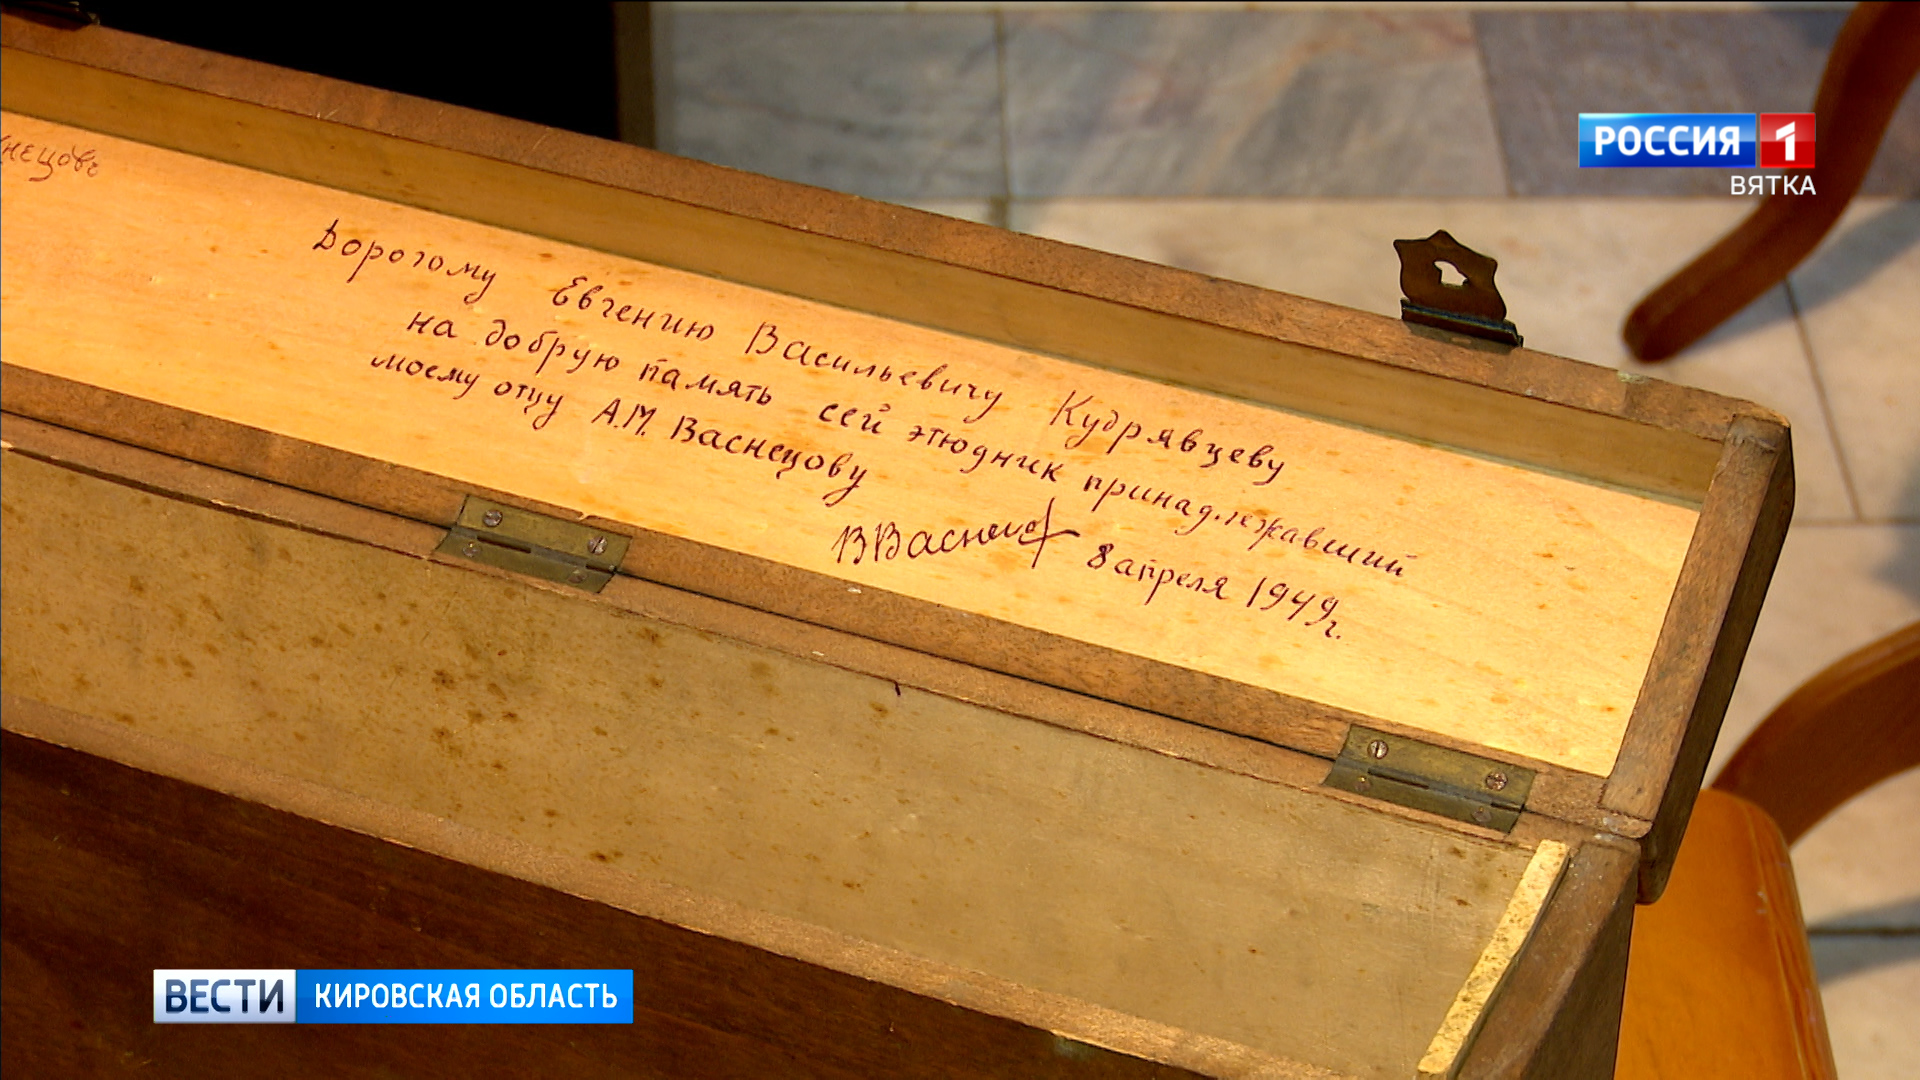 РОССИЯ 1
ВЯТКА
нецовъ
Дорогому Евгению Васильевичу Кудрявцеву
на добрую память сей этюдник принадлежавший
моему отцу А.М. Васнецову
ВВаснецов 8 апреля 1949г.
ВЕСТИ КИРОВСКАЯ ОБЛАСТЬ